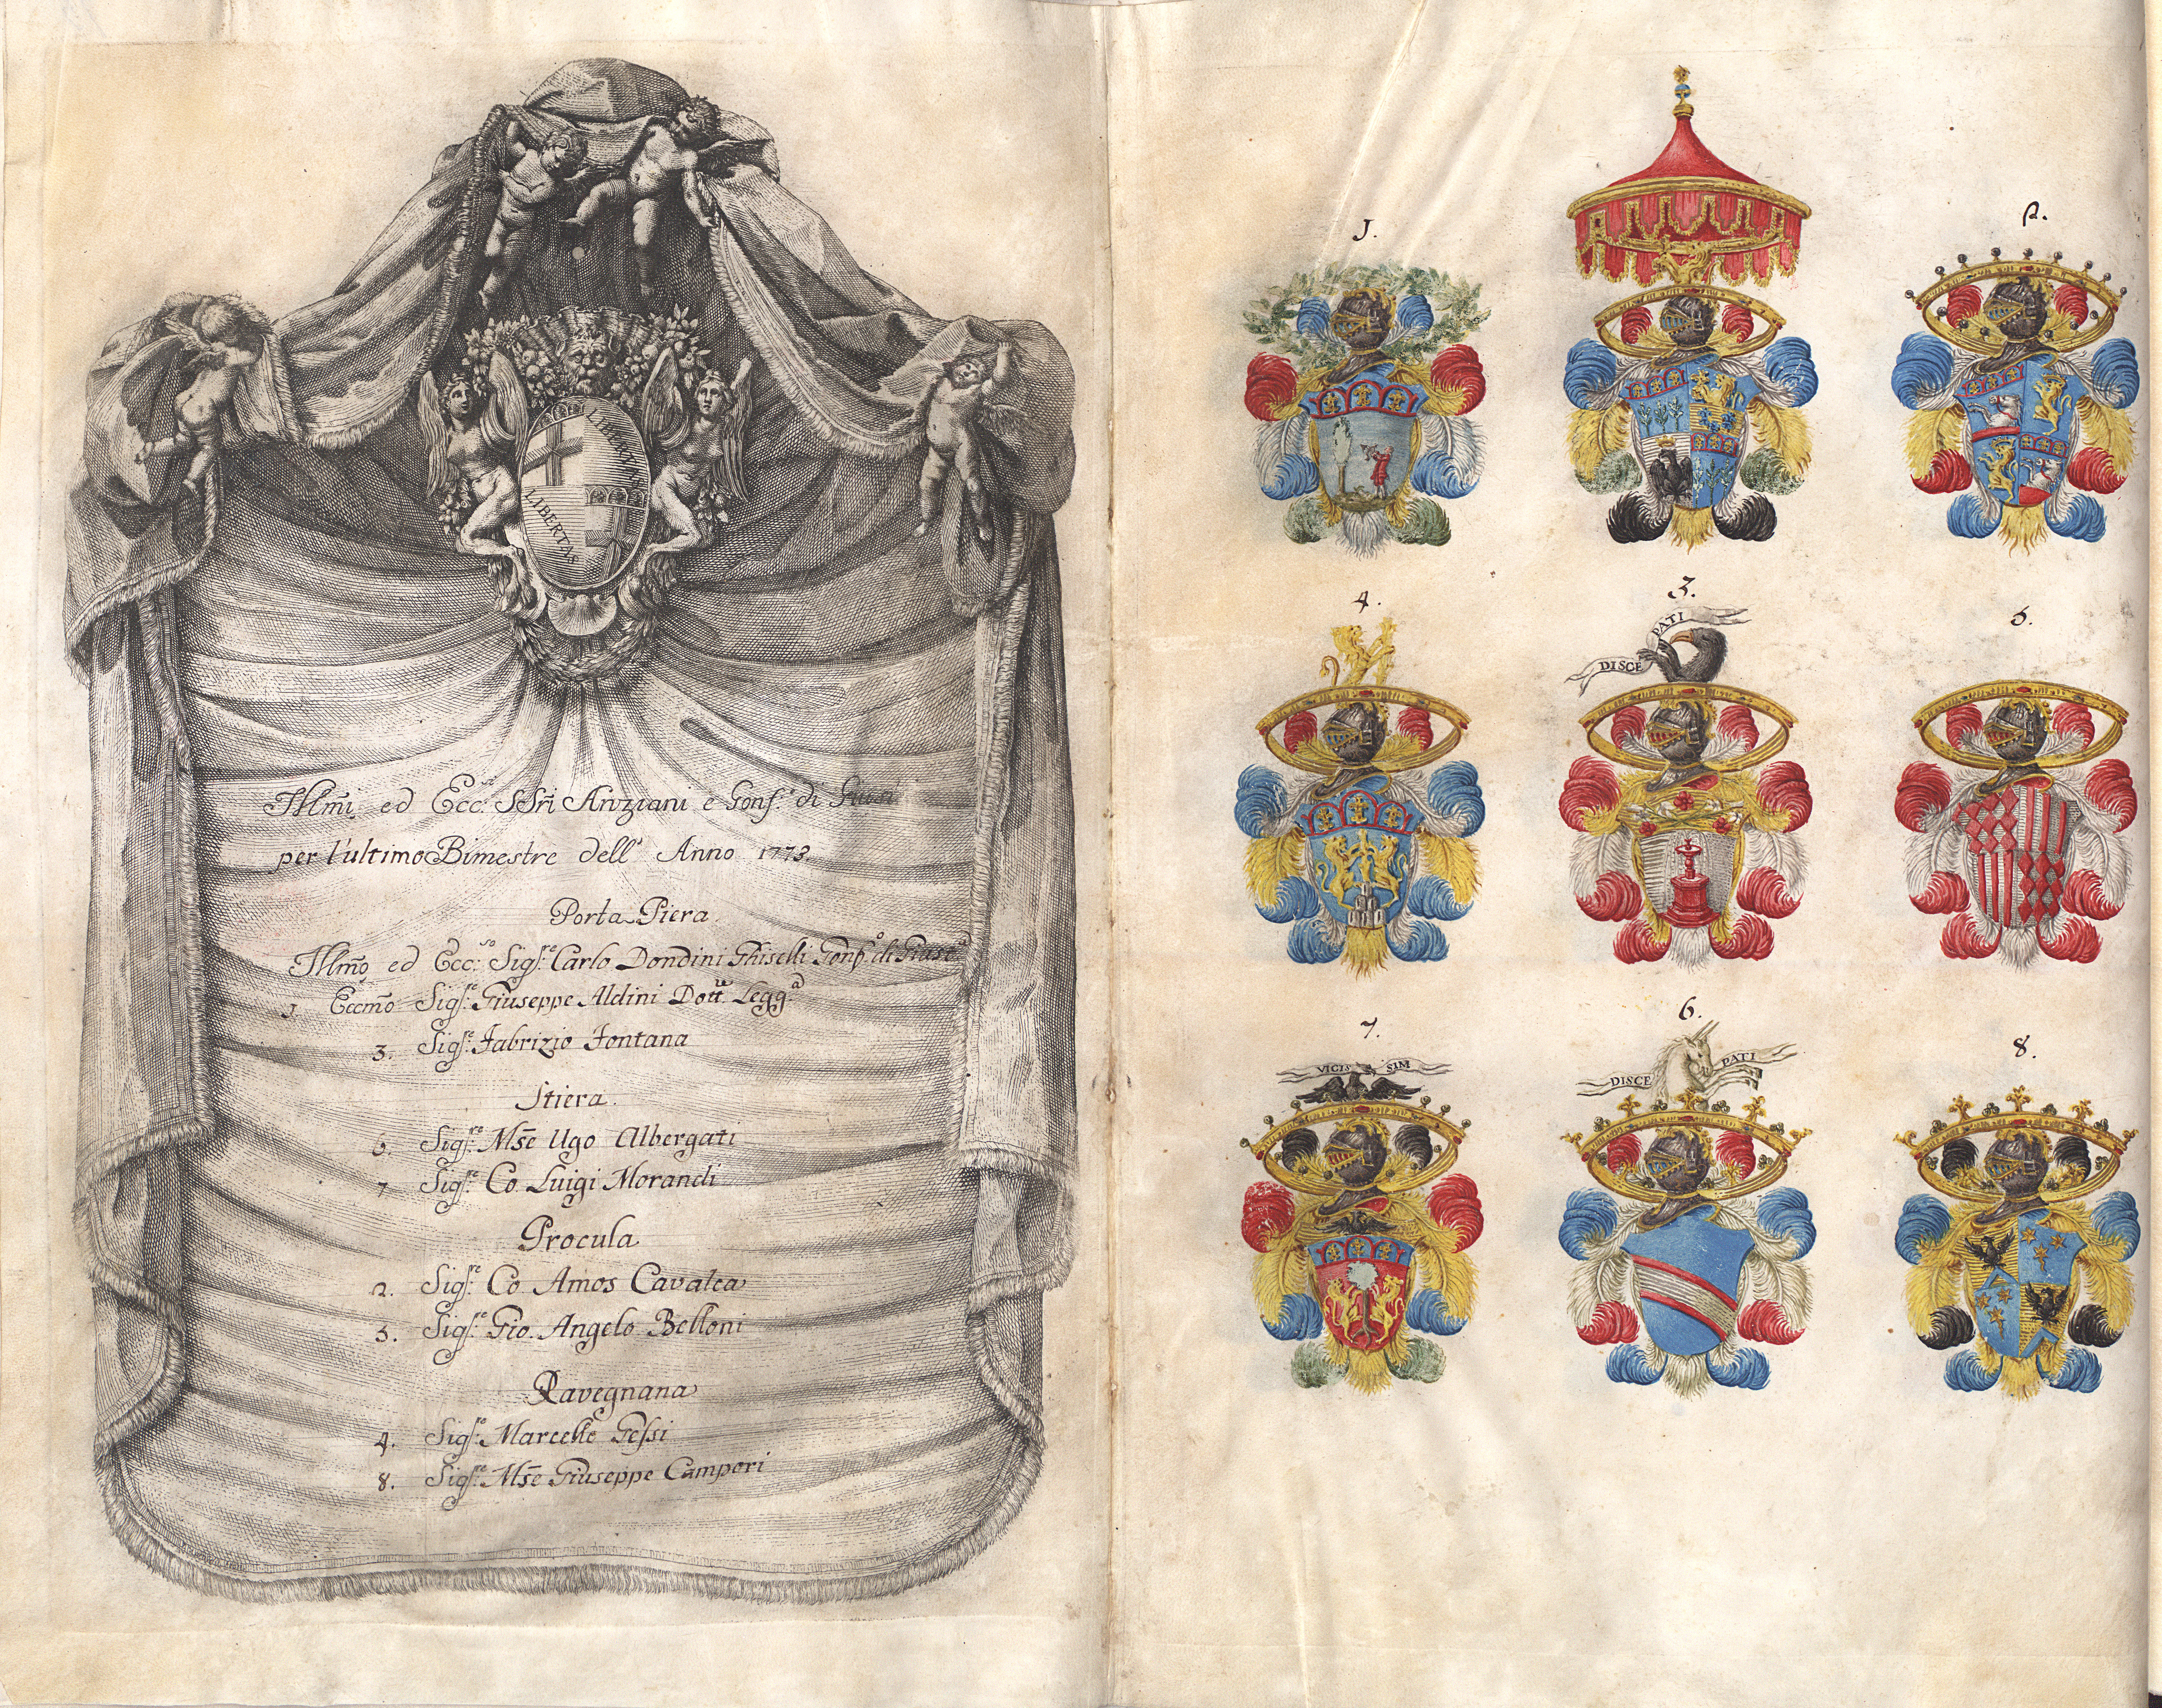 LIBERTAS
LIBERTAS
Illm̃i ed Ecc.ⁱ SSr̃i Anziani e Gonf.ᵉ di Giust
per l'ultimo Bimestre dell' Anno 1773.
Porta Piera.
Illm̃o ed Ecc.ᵐᵒ Sigᵣᵉ Carlo Dondini Ghiselli Gonf.ᵒ di Giustᵃ
1. Eccm̃o Sig.ʳᵉ Giuseppe Aldini Dott.ʳᵉ Legg.ᵃ
3. Sig.ʳᵉ Fabrizio Fontana
Stiera.
6. Sig.ʳᵉ Mse Ugo Albergati
7 Sig.ʳᵉ Co. Luigi Morandi
Procula
2. Sig.ʳᵉ Co. Amos Cavalca
5. Sig.ʳᵉ Gio. Angelo Belloni
Ravegnana
4. Sig.ʳᵉ Marcello Gessi
8. Sig.ʳᵉ Mse Giuseppe Campori
1.
2.
4.
3.
DISCE PATI
5.
7.
VICIS SIM
6.
DISCE PATI
8.